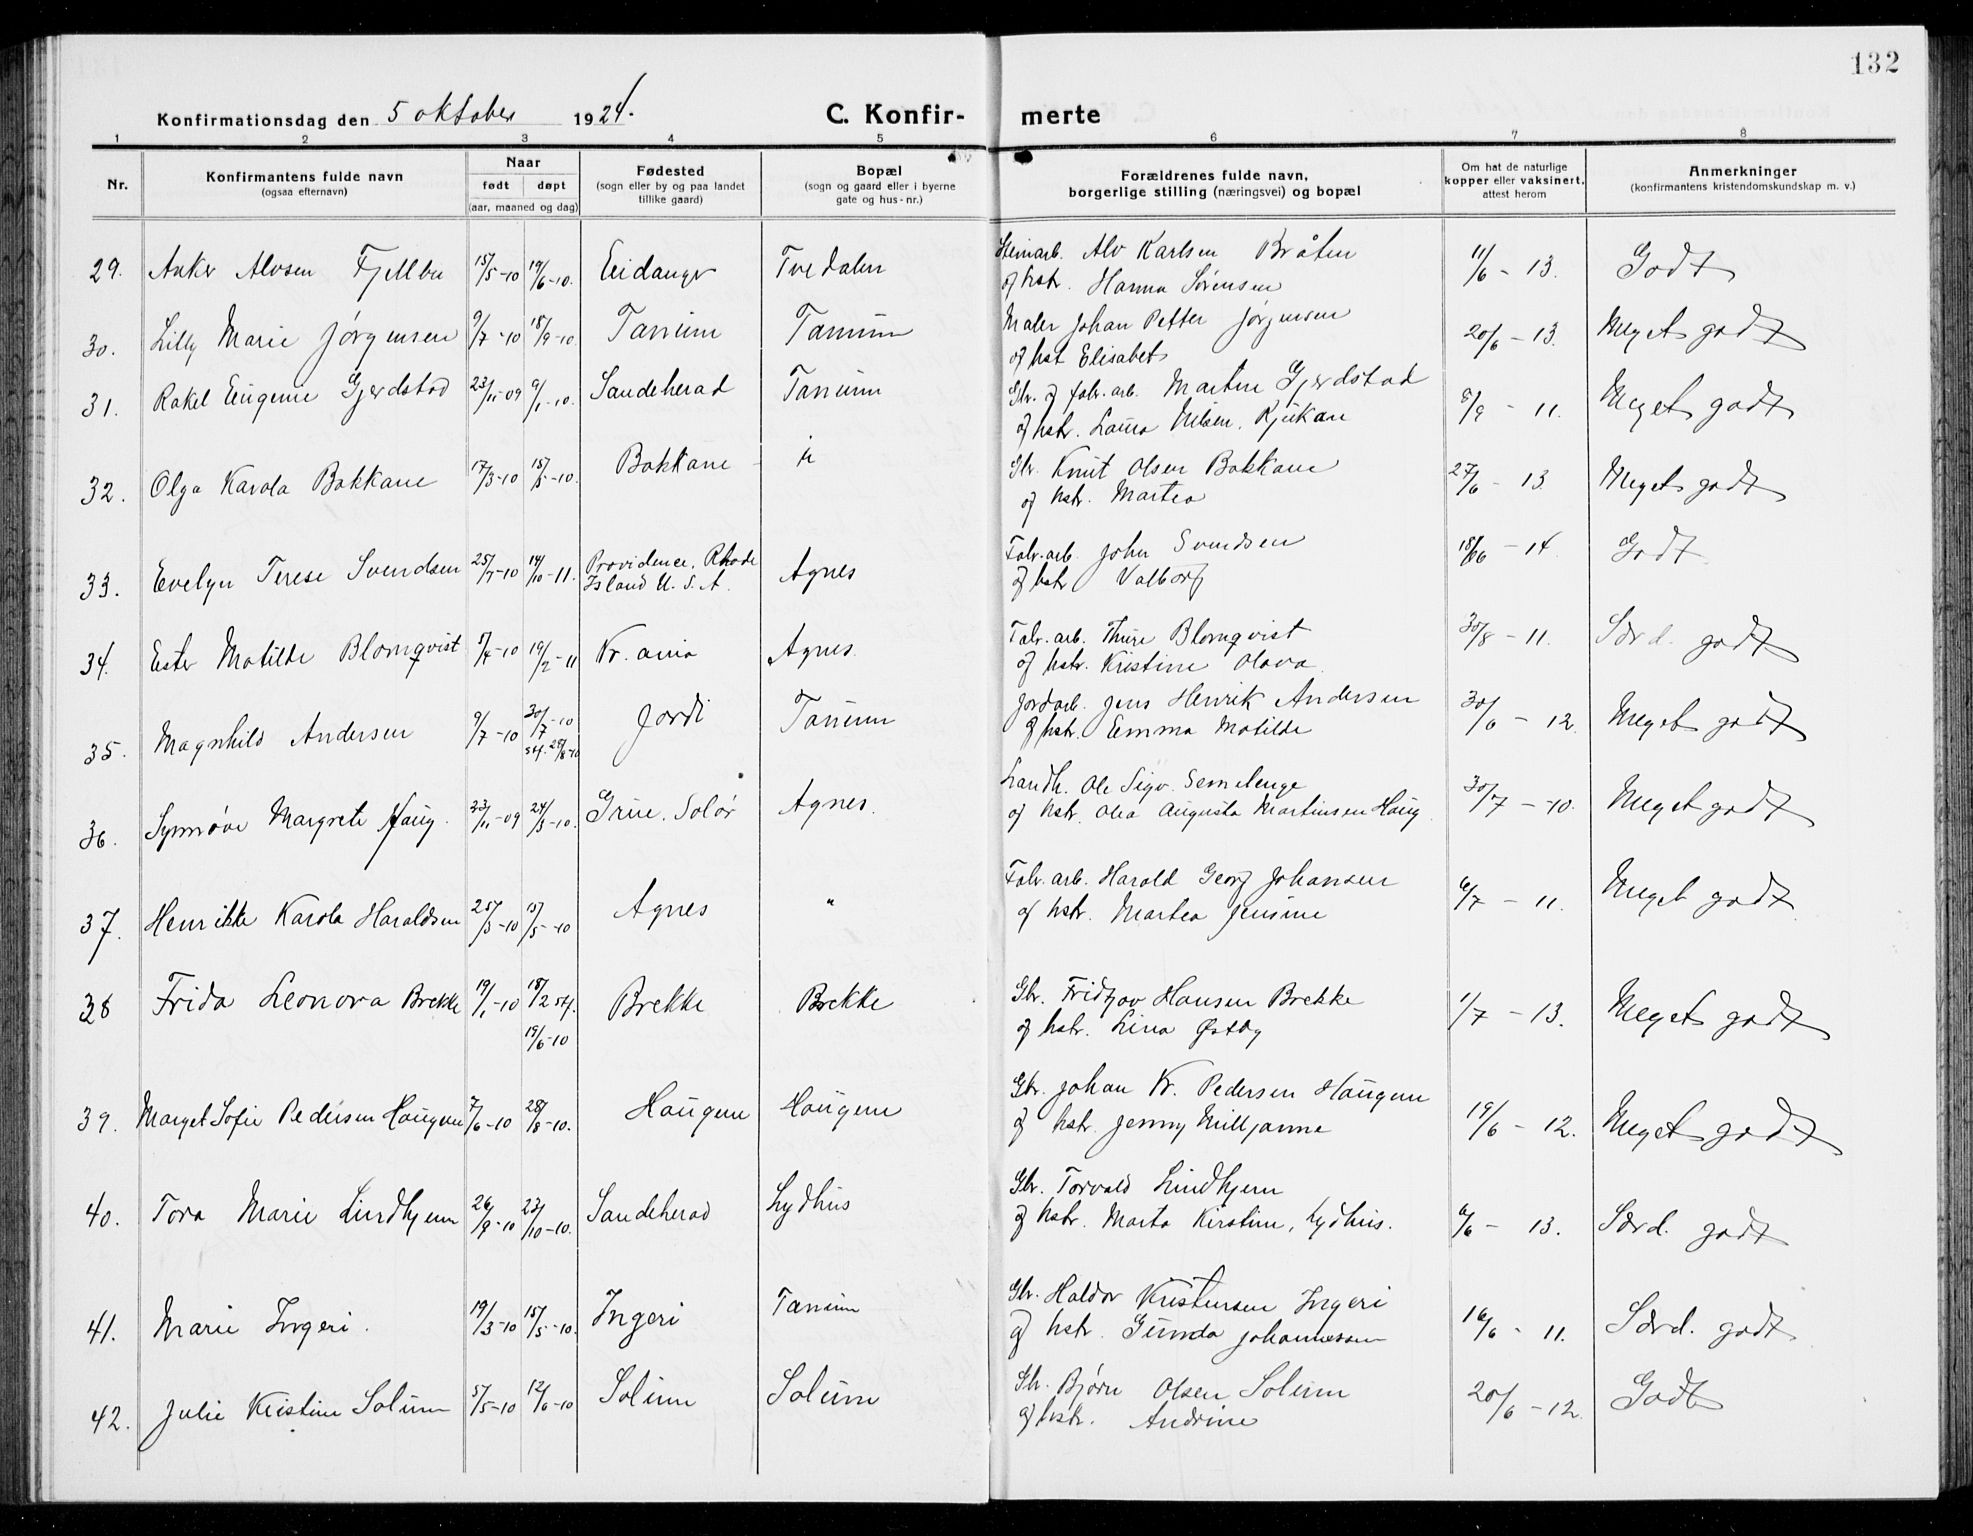 132
Konfirmationsdag den 5 oktober 1924.
C. Konfir- merte
1 2 3 4 5 6 7 8
Nr.
Konfirmantens fulde navn
(ogsaa efternavn)
Naar
født døpt
(aar, maaned og dag)
Fødested
(sogn eller by og paa landet
tillike gaard)
Bopæl
(sogn og gaard eller i byerne
gate og hus-nr.)
Forældrenes fulde navn,
borgerlige stilling (næringsvei) og bopæl
Om hat de naturlige
kopper eller vaksinert,
attest herom
Anmerkninger
(konfirmantens kristendomskundskap m. v.)
29. Anker Alvsen Fjellbu 15/5-10 19/6-10. Eidanger Tvedalen Steinarb. Alv Karlsen Bråten 11/6 - 13. Godt
og hstr. Hanna Sørensen
30. Lilly Marie Jørgensen 9/7-10 18/9-10. Tanum Tanum Maler Johan Petter Jørgensen 20/6 - 13. Meget godt
og hst Elisabet
31. Rakel Eugenie Gjerdstad 23/11-09 9/1-10. Sandeherad Tanum Gbr. og fabr. arb. Martin Gjerdstad 8/9 - 11. Meget godt
og hstr. Laura Nilsen, Rjukan
32. Olga Karola Bakkane 17/3-10 15/5-10. Bakkane - " Gbr. Knut Olsen Bakkane 27/6 - 13 Meget godt
og hstr. Martea
33. Evelyn Terese Svendsen 25/7-10 14/10-11. Providence, Rhode Island U. S. A. Agnes Fabr. arb. John Svendsen 18/6 - 14 Godt
og hstr Valborg
34. Ester Matilde Blomqvist 7/4-10 19/2-11 Kr.ania Agnes. Fabr. arb. Thure Blomqvist 30/8 - 11. Særd. godt
og hstr. Kristine Olava
35. Magnhild Andersen 9/7-10 30/7-10 stf. 28/8-10 Jordi Tanum Jordarb. Jens Henrik Andersen 30/6 - 12. Meget godt
og hstr. Emma Matilde
36. Synnøve Margrete Haug. 23/11-09 24/3-10. Grue, Solør Agnes. Landh. Ole Sigv. Semelenge 30/7 - 10. Meget godt
og hstr. Olea Augusta Martinsen Haug
37. Henrikke Karola Haraldsen 25/3-10 15/5-10 Agnes " Fabr. arb. Harald Georg Johansen 6/7 - 11. Meget godt
og hstr. Martea Jensine
38 Frida Leonora Brekke 19/1-10 18/2 stf. 19/6-10 Brekke Brekke Gbr. Fridtjov Hansen Brekke 1/7 - 13. Meget godt
og hstr. Lina Østby
39. Marget Sofie Pedersen Haugene 7/6-10 28/8-10. Haugene Haugene Gbr. Johan Kr. Pedersen Haugene 19/6 - 12. Meget godt
og hstr. Jenny Milljanne
40. Tora Marie Lindhjem 26/9-10 23/10-10. Sandeherad Lydhus Gbr. Torvald Lindhjem 6/6 - 13. Særd. godt
og hstr. Marta Kirstine, Lydhus.
41. Marie Ingeri. 19/3-10 15/5-10. Ingeri Tanum Gbr. Haldor Kristensen Ingeri 16/6 - 11. Særd. godt
og hstr. Gunda Johannessen
42. Julie Kristine Solum 5/5-10 12/6-10 Solum Solum Gbr. Bjørn Olsen Solum 20/6 - 12. Godt
og hstr. Andrine